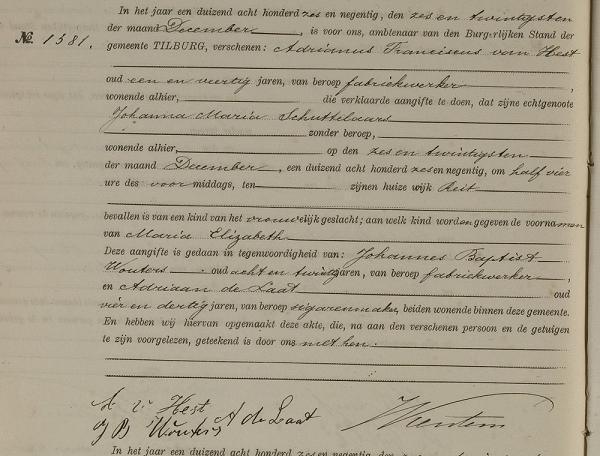 In het jaar een duizend acht honderd zes en negentig, den zes en twintigsten
№ 1381. der maand December, is voor ons, ambtenaar van den Burgerlijken Stand der
gemeente TILBURG, verschenen: Adrianus Franciscus van Hest
oud een en veertig jaren, van beroep fabriekwerker,
wonende alhier, die verklaarde aangifte te doen, dat zijne echtgenoote
Johanna Maria Schuttelaars
zonder beroep,
wonende alhier, op den zes en twintigsten
der maand December, een duizend acht honderd zes en negentig, om half vier
ure des voor middags, ten zijnen huize wijk Reit
bevallen is van een kind van het vrouwelijk geslacht; aan welk kind worden gegeven de voornamen
van Maria Elizabeth
Deze aangifte is gedaan in tegenwoordigheid van: Johannes Baptist
Wouters oud acht en twintig jaren, van beroep fabriekwerker,
en Adriaan de Laat oud
vier en dertig jaren, van beroep sigarenmaker, beiden wonende binnen deze gemeente.
En hebben wij hiervan opgemaakt deze akte, die, na aan den verschenen persoon en de getuigen
te zijn voorgelezen, geteekend is door ons met hen.
A v Hest
J B Wouters A de Laat
In het jaar een duizend acht honderd zes en negentig, den